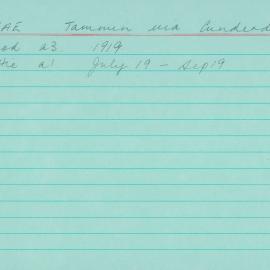 RAE Tammin via Cunderd
od a3. 1919
tie a1 July 19 - Sep 19